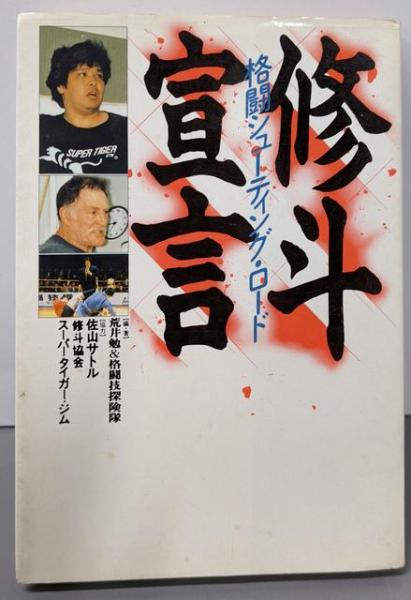 修斗
宣言
格闘シューティング・ロード
SUPER TIGER
GYM
[編・著]
荒井勉&格闘技探険隊
[協力]
佐山サトル
修斗協会
スーパータイガー・ジム